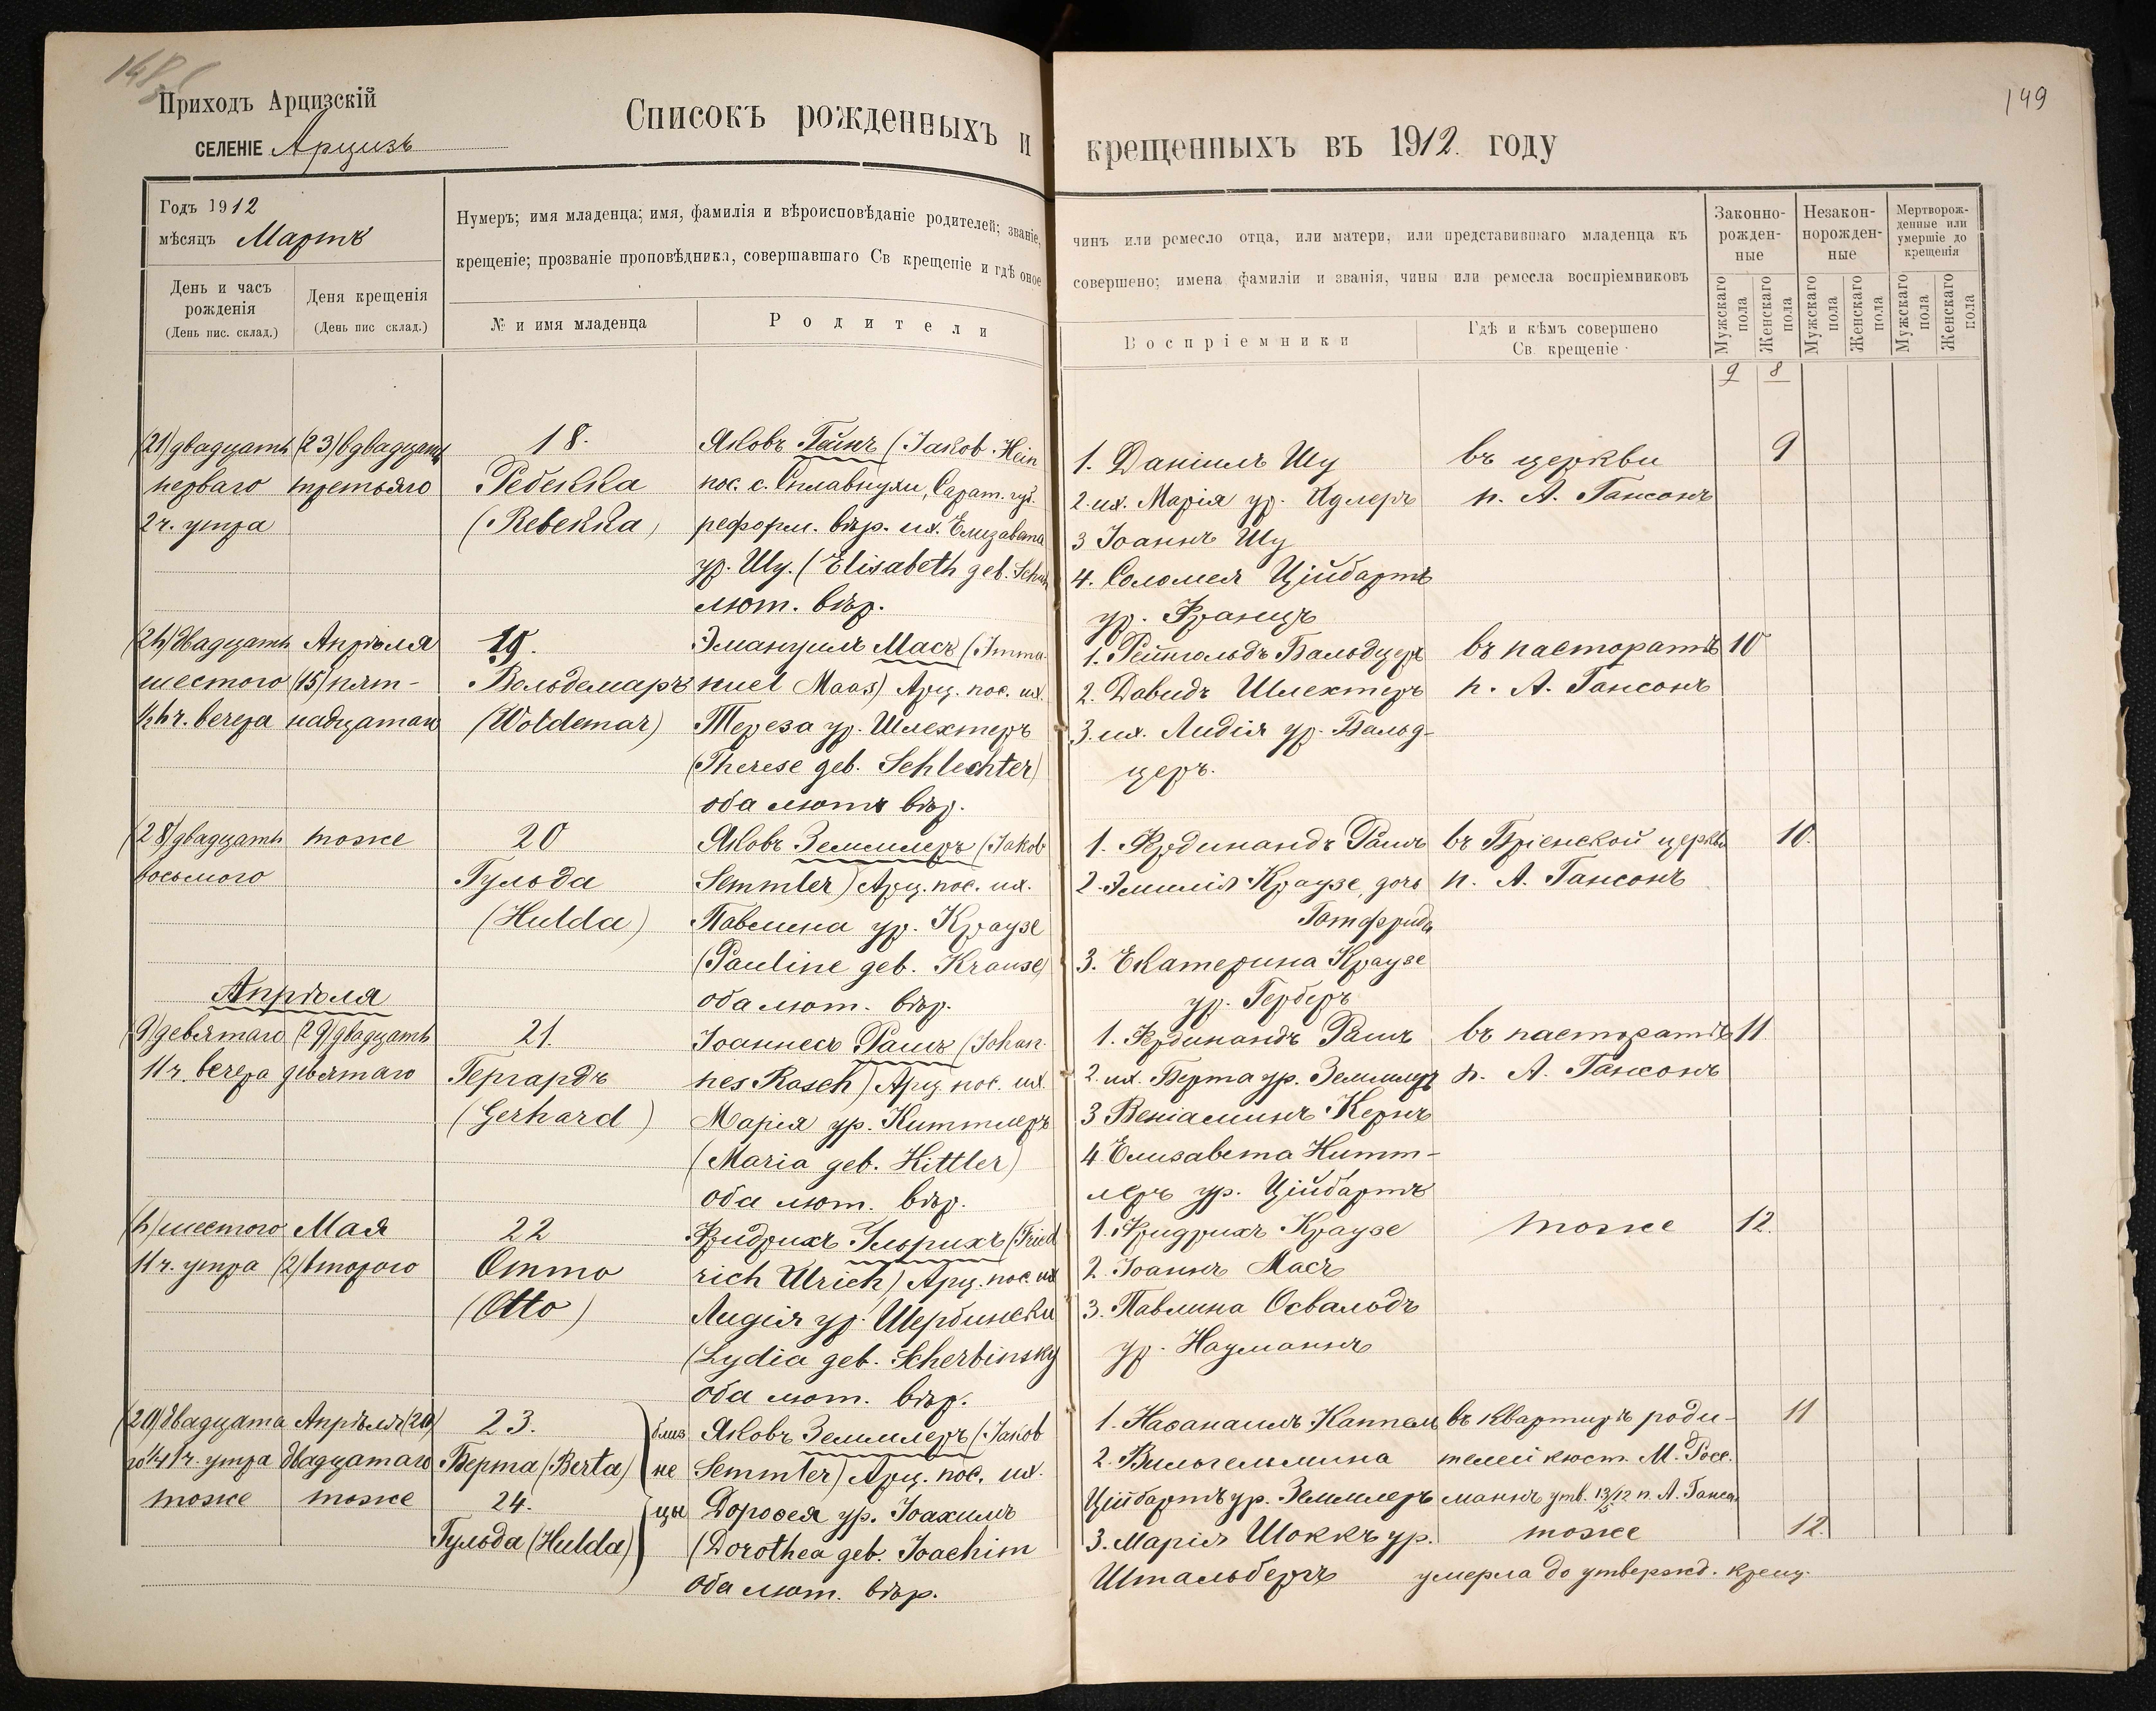 149
Приходъ Арцизскій
СЕЛЕНІЕ Арцизъ
Списокъ рожденныхъ и крещенныхъ въ 1912. году
Годъ 1912
мѣсяцъ Мартъ
День и часъ рожденія
(День пис. склад.)
Деня крещенія
(День пис склад.)
Нумеръ; имя младенца; имя, фамилія и вѣроисповѣданіе родителей; званіе, чинъ или ремесло отца, или матери, или представившаго младенца къ
крещеніе; прозваніе проповѣдника, совершавшаго Св крещеніе и гдѣ оное совершено; имена фамиліи и званія, чины или ремесла воспріемниковъ
№ и имя младенца
Родители
Воспріемники
Гдѣ и кѣмъ совершено
Св. крещеніе
Законно-
рожден-
ные
Незакон-
норожден-
ные
Мертворож-
денные или
умершіе до
крещенія
Мужскаго пола
Женскаго пола
Мужскаго пола
Женскаго пола
Мужскаго пола
Женскаго пола
9 8
(21) двадцать
перваго
2 ч. утра
(23) двадцать
третьяго
18.
Ребекка
(Rebekka)
Яковъ Гейнъ (Jakob Hein
пос. с. Сплавнухи, Сарат. губ.
реформ. вѣр. их. Елизавета
ур. Шу. (Elisabeth geb. Schuh
лют. вѣр.
1. Даніилъ Шу
2. их. Марія ур. Идлеръ
3 Іоаннъ Шу
4. Соломея Ційбартъ
ур. Францъ
въ церкви
п. А. Гансонъ
9
двадцать
шестого
ч. вечера
Апрѣля
(15) пят-
надцатаго
19.
Вольдемаръ
(Woldemar)
Эмануилъ Масъ (Imma-
nuel Maas) Арц. пос. их.
Тереза ур. Шлехтеръ
(Therese geb. Schlechter)
оба лютъ вѣр.
1. Рейнгольдъ Бальдцеръ
2. Давидъ Шлехтеръ
3. их. Лидія ур. Бальд-
церъ.
въ пасторатѣ
п. А. Гансонъ
10
(28) двадцать
восьмого
тоже
20
Гульда
(Hulda)
Яковъ Земмлеръ (Jakob
Semmler) Арц. пос. их.
Павлина ур. Краузе
(Pauline geb. Krause)
оба лют. вѣр.
1. Фердинандъ Рашъ
2. Эмилія Краузе, дочь
Готфрида
3. Екатерина Краузе
ур. Герберъ
въ Бріенской церкви
п. А. Гансонъ
10.
Апрѣля
(9) девятаго
11 ч. вечера
(29) двадцать
девятаго
21.
Гергардъ
(Gerhard)
Іоаннесъ Рашъ (Johan-
nes Rasch) Арц. пос. их
Марія ур. Киттлеръ
(Maria geb. Kittler)
оба лют. вѣр.
1. Фердинандъ Рашъ
2. их. Берта ур. Земмлеръ
3 Веніаминъ Кернъ
4 Елисавета Китт-
леръ ур. Ційбартъ
въ пасторатѣ
п. А. Гансонъ
11.
шестого
11 ч. утра
Мая
(2) второго
22
Отто
(Otto)
Фридрихъ Ульрихъ (Fried
rich Ulrich) Арц. пос. их
Лидія ур. Шербински
(Lydia geb. Scherbinsky
оба лют. вѣр.
1. Фридрихъ Краузе
2. Іоаннъ Масъ
3. Павлина Освальдъ
ур. Науманнъ
тоже
12.
(20) двадцата
го ч. утра
Апрѣля (20)
двадцатаго
23.
Берта (Berta)
тоже
тоже
24.
Гульда (Hulda)
близ
не
цы
Яковъ Земмлеръ (Jakob
Semmler) Арц. пос. их.
Доровея ур. Іоахимъ
(Dorothea geb. Joachim
оба лют. вѣр.
1. Насанаилъ Каппель
2. Вильгельмина
Ційбартъ ур. Земмлеръ
3. Марія Шоккъ ур.
Штальбергъ
въ квартирѣ роди-
телей кюст. М. Росс.
маннъ утв. 13/5 12 п. А. Гансон
тоже
умерла до утвержд. крещ.
11
12.